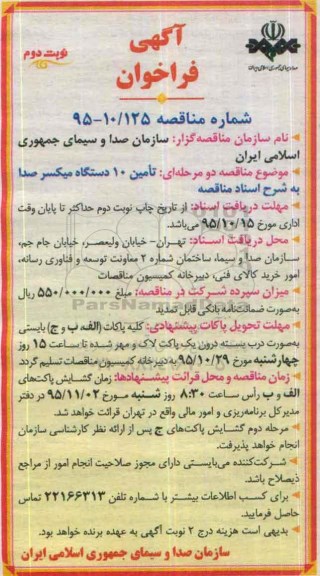 آگهی
فراخوان
نوبت دوم
شماره مناقصه ۱۰/۱۲۵-۹۵
نام سازمان مناقصه‌گزار: سازمان صدا و سیمای جمهوری
اسلامی ایران
موضوع مناقصه دو مرحله‌ای: تأمین ۱۰ دستگاه میکسر صدا
به شرح اسناد مناقصه
مهلت دریافت اسناد: از تاریخ چاپ نوبت دوم حداکثر تا پایان وقت
اداری مورخ ۹۵/۱۰/۱۵ می‌باشد.
محل دریافت اسناد: تهران- خیابان ولیعصر، خیابان جام جم،
سازمان صدا و سیما، ساختمان شماره ۲ معاونت توسعه و فناوری رسانه،
امور خرید کالای فنی، دبیرخانه کمیسیون مناقصات
میزان سپرده شرکت در مناقصه: مبلغ ۵۵۰/۰۰۰/۰۰۰ ریال
به‌صورت ضمانت‌نامه بانکی قابل تمدید
مهلت تحویل پاکات پیشنهادی: کلیه پاکات (الف، ب و ج) بایستی
به‌صورت درب بسته درون یک پاکت لاک و مهر شده تا ساعت ۱۵ روز
چهارشنبه مورخ ۹۵/۱۰/۲۹ به دبیرخانه کمیسیون مناقصات تسلیم گردد.
زمان مناقصه و محل قرائت پیشنهادها: زمان گشایش پاکت‌های
الف و ب رأس ساعت ۸:۳۰ روز شنبه مورخ ۹۵/۱۱/۰۲ در دفتر
مدیر کل برنامه‌ریزی و امور مالی واقع در تهران قرائت خواهد شد.
مرحله دوم گشایش پاکت‌های ج پس از ارائه نظر کارشناسی سازمان
انجام خواهد پذیرفت.
شرکت‌کننده می‌بایستی دارای مجوز صلاحیت انجام امور از مراجع
ذیصلاح باشد.
برای کسب اطلاعات بیشتر با شماره تلفن ۲۲۱۶۶۳۱۳ تماس
حاصل فرمایید.
بدیهی است هزینه درج ۲ نوبت آگهی به عهده برنده خواهد بود.
سازمان صدا و سیمای جمهوری اسلامی ایران